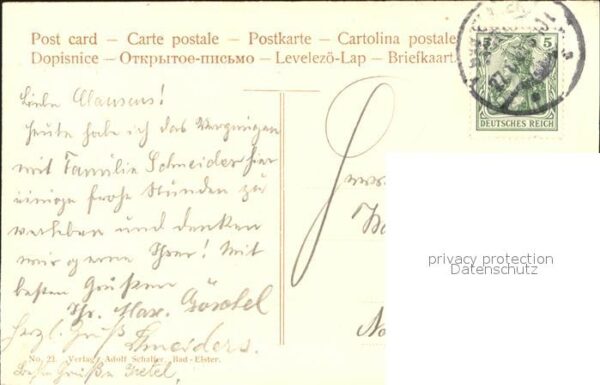 Post card – Carte postale – Postkarte – Cartolina postale
Dopisnice – Открытое-письмо – Levelező-Lap – Briefkaart
5
DEUTSCHES REICH
Liebe Clausens!
Heute habe ich das Vergnügen
mit Familie Schneider hier
einige frohe Stunden zu
verleben und denken
wir gerne Ihrer! Mit
besten Grüßen
Ihr Max
Herzl. Gruß
Schneiders.
No. 22. Verlag: Adolf Schaller, Bad-Elster.
Beste Grüße Gretel.
privacy protection
Datenschutz